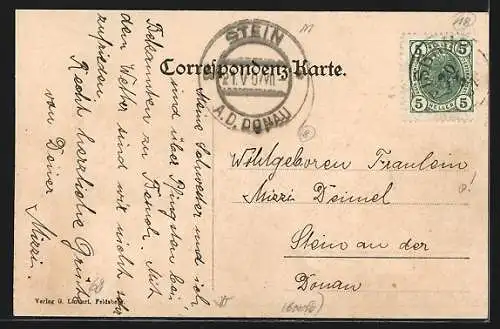 STEIN
21.V.07
A.D. DONAU
Correspondenz-Karte.
5 5
HELLER
5 5
Meine Schwester und ich
sind über Pfingsten bei
Bekannten zu Besuch. Mit
dem Wetter sind wir nicht sehr
zufrieden.
Recht herzliche Grüße
von Deiner
Mizzi.
Wohlgeboren Fraulein
Mizzi Deimel
Stein an der
Donau
Verlag G. Feldsberg